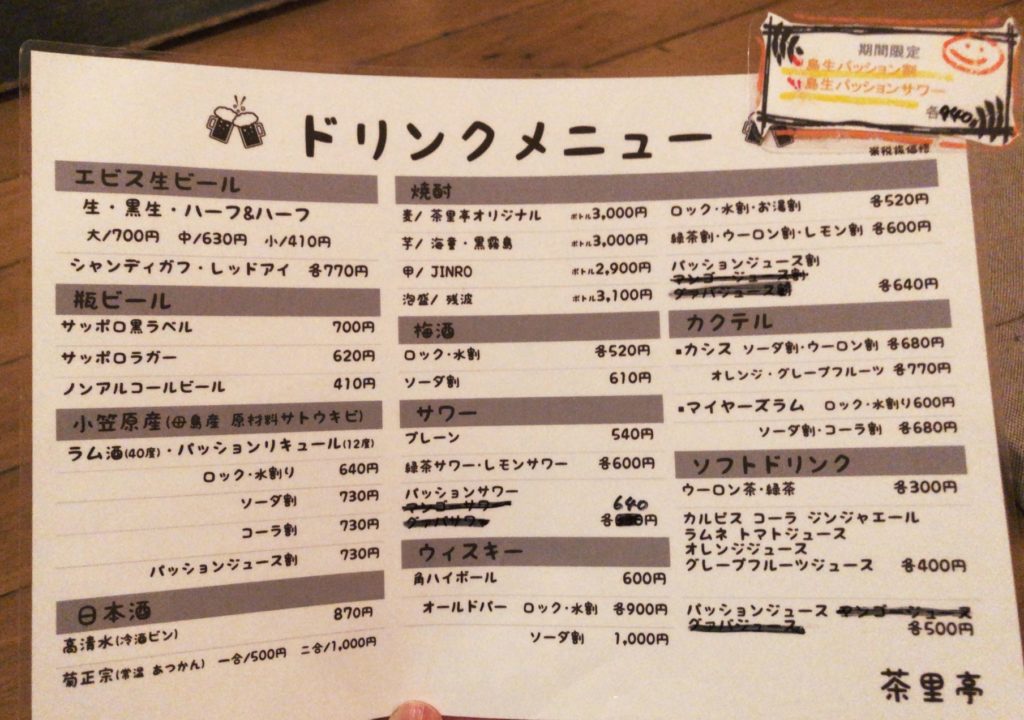 期間限定
島生パッション割
島生パッションサワー
各440円
ドリンクメニュー
※税抜価格
エビス生ビール
生・黒生・ハーフ&ハーフ
大/700円 中/630円 小/410円
シャンディガフ・レッドアイ 各770円
瓶ビール
サッポロ黒ラベル 700円
サッポロラガー 620円
ノンアルコールビール 410円
小笠原産(母島産 原材料サトウキビ)
ラム酒(40度)・パッションリキュール(12度)
ロック・水割り 640円
ソーダ割 730円
コーラ割 730円
パッションジュース割 730円
日本酒
高清水(冷酒ビン) 870円
菊正宗(常温 あつかん) 一合/500円 二合/1,000円
焼酎
麦/ 茶里亭オリジナル ボトル3,000円
芋/ 海童・黒霧島 ボトル3,000円
甲/ JINRO ボトル2,900円
泡盛/ 残波 ボトル3,100円
ロック・水割・お湯割 各520円
緑茶割・ウーロン割・レモン割 各600円
パッションジュース割
マンゴージュース割
グァバジュース割 各640円
梅酒
ロック・水割 各520円
ソーダ割 610円
サワー
プレーン 540円
緑茶サワー・レモンサワー 各600円
パッションサワー
マンゴーサワー 640
グァバサワー 各円
ウィスキー
角ハイボール 600円
オールドパー ロック・水割 各900円
ソーダ割 1,000円
カクテル
▪カシス ソーダ割・ウーロン割 各680円
オレンジ・グレープフルーツ 各770円
▪マイヤーズラム ロック・水割り600円
ソーダ割・コーラ割 各680円
ソフトドリンク
ウーロン茶・緑茶 各300円
カルピス コーラ ジンジャエール
ラムネ トマトジュース
オレンジジュース
グレープフルーツジュース 各400円
パッションジュース マンゴージュース
グァバジュース 各500円
茶里亭